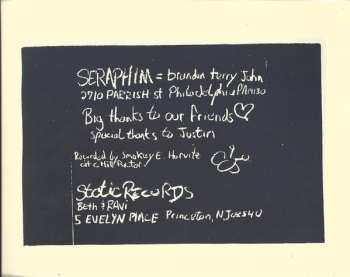 SERAPHIM = brandon terry John
2710 PARRISH st Philadelphia PA 19130
Big thanks to our friends
special thanks to Justin
Recorded by Smokey E. Horvitz
Static RECORDS
BETH & RAVI
5 EVELYN PLACE Princeton, NJ 08540